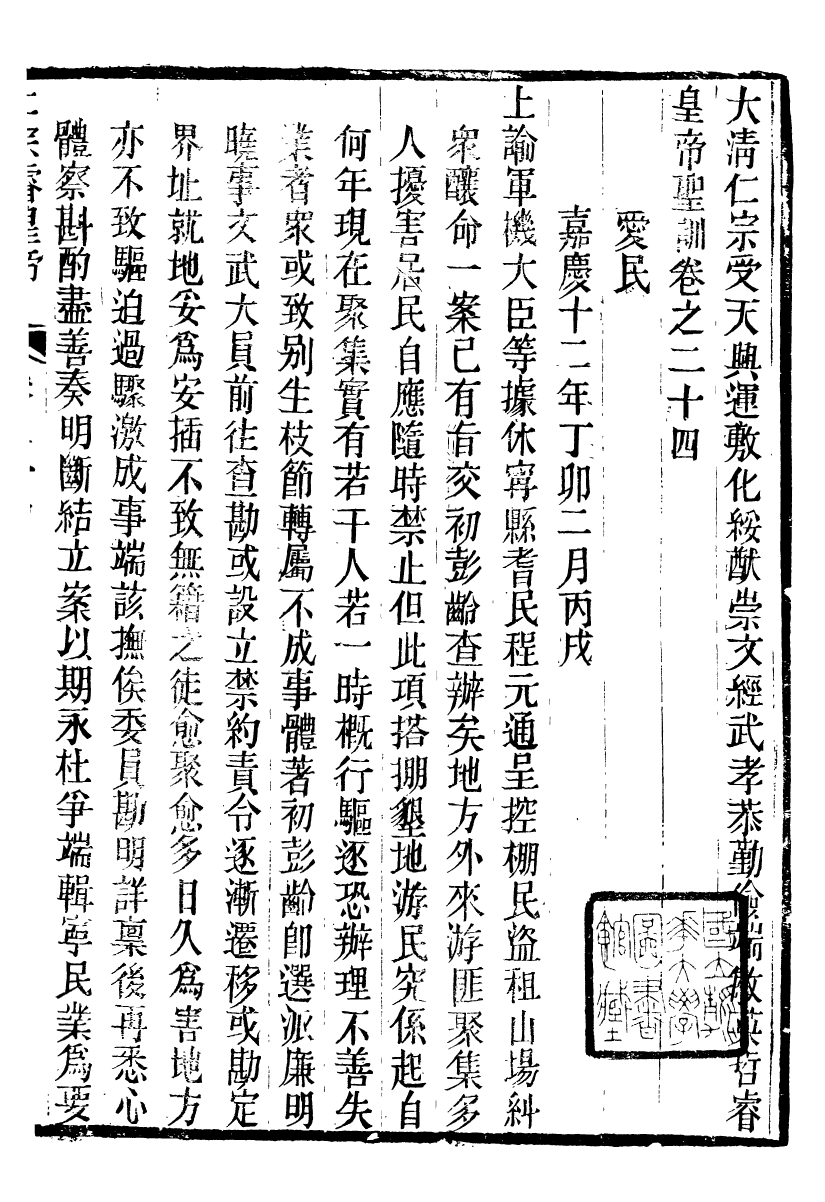 大清仁宗受天興運敷化綏猷崇文經武孝恭勤儉端敏英哲睿
皇帝聖訓卷之二十四
愛民
嘉慶十二年丁卯二月丙戌
上諭軍機大臣等據休寧縣耆民程元通呈控棚民盜租山場糾
衆釀命一案已有旨交初彭齡查辦矣地方外來游匪聚集多
人擾害居民自應隨時禁止但此項搭棚墾地游民究係起自
何年現在聚集實有若干人若一時概行驅逐恐辦理不善失
業者衆或致别生枝節轉屬不成事體著初彭齡卽選派廉明
曉事文武大員前往查勘或設立禁約責令逐漸遷移或勘定
界址就地妥爲安插不致無籍之徒愈聚愈多日久爲害地方
亦不致驅迫過驟激成事端該撫俟委員勘明詳稟後再悉心
體察斟酌盡善奏明斷結立案以期永杜爭端輯寧民業爲要
仁宗睿皇帝
國立清
華大學
圖書
館藏